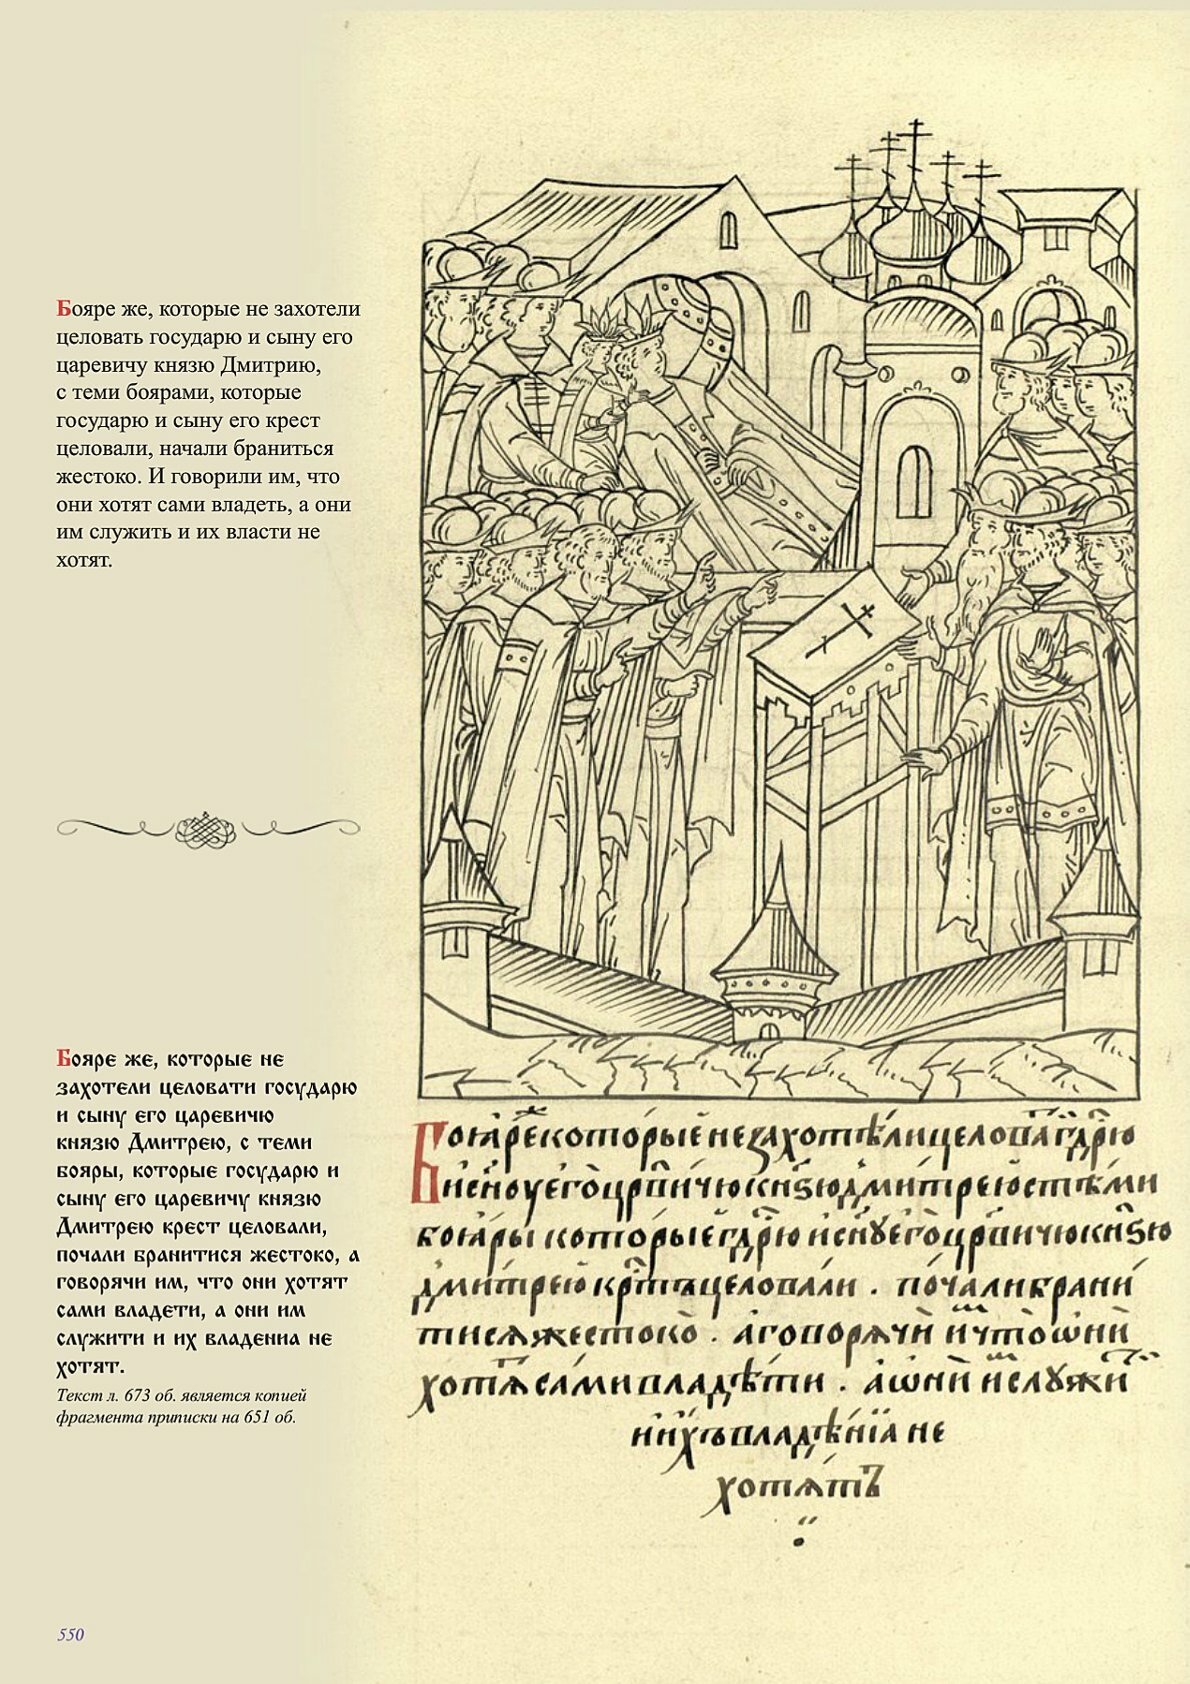 Бояре же, которые не захотели
целовать государю и сыну его
царевичу князю Дмитрию,
с теми боярами, которые
государю и сыну его крест
целовали, начали браниться
жестоко. И говорили им, что
они хотят сами владеть, а они
им служить и их власти не
хотят.
Бояре же, которые не
захотели целовати государю
и сыну его царевичю
князю Дмитрею, с теми
бояры, которые государю и
сыну его царевичу князю
Дмитрею крест целовали,
почали бранитися жестоко, а
говорячи им, что они хотят
сами владети, а они им
служити и их владениа не
хотят.
Текст л. 673 об. является копией
фрагмента приписки на 651 об.
боꙗрекоторыенезахотѣлицеловагдрю
иснꙋегоцрвичюкнѕюдмитреюстѣми
боꙗры которыегдрю иснꙋегоцрвичюкнѕю
дмитрею крт҃ъцеловали . почалибрани
тисѧжестоко . аговорѧчи ичтоѡни
хотѧсамивладѣти . аѡни ислꙋжи
иихъвладѣнїа не
хотѧтъ
550